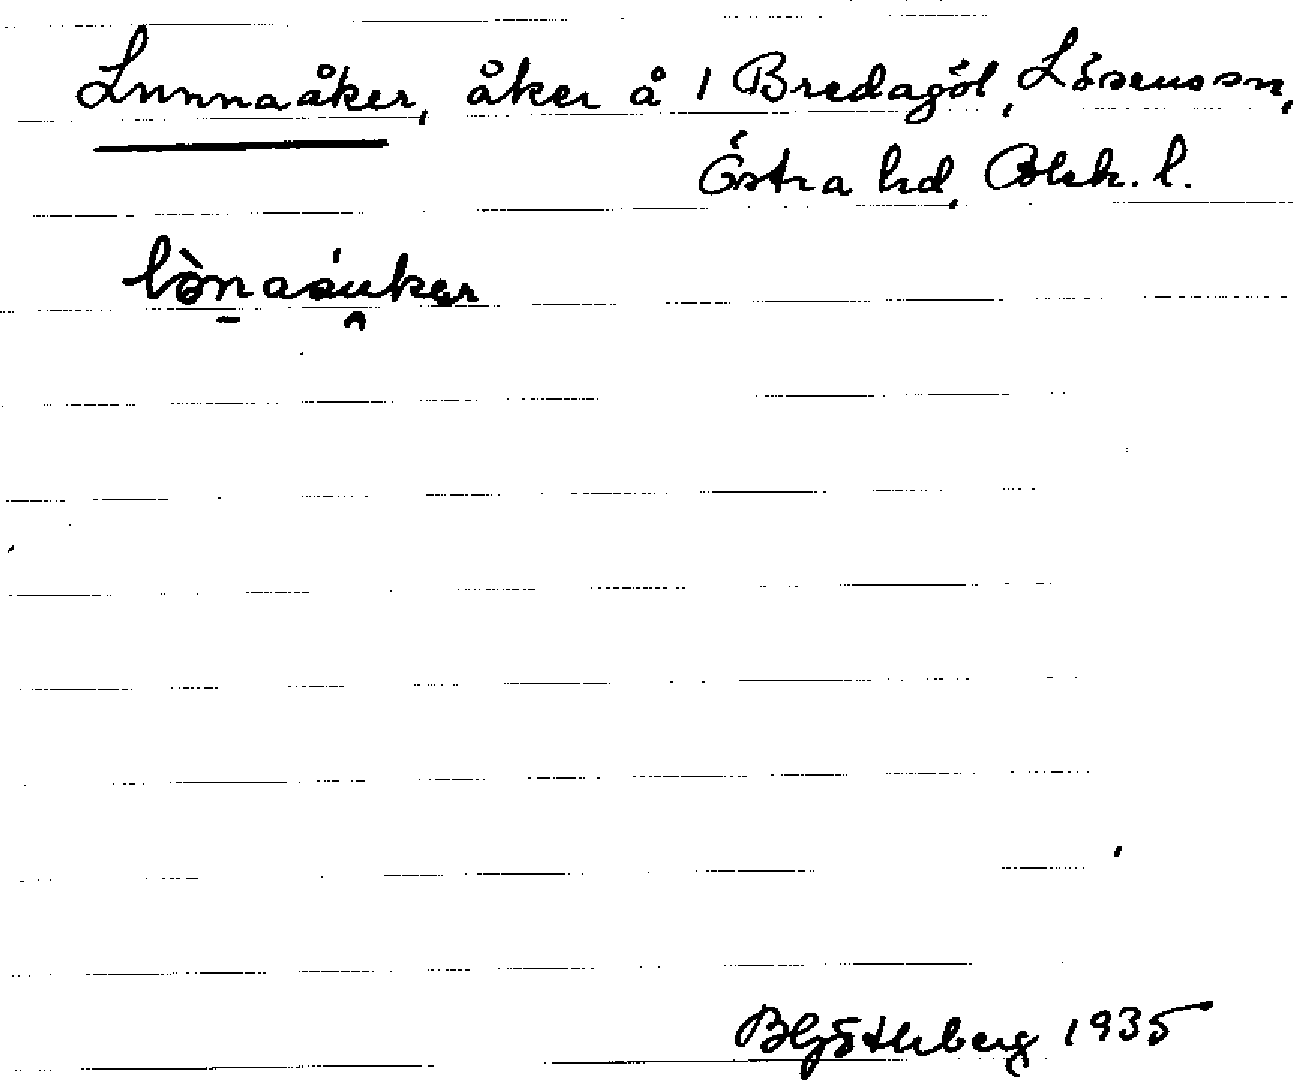 Lunnaåker, åker å 1 Bredagöl, Lösens sn,
Östra hd, Blek. l.
lònaáuker
B Göthberg 1935